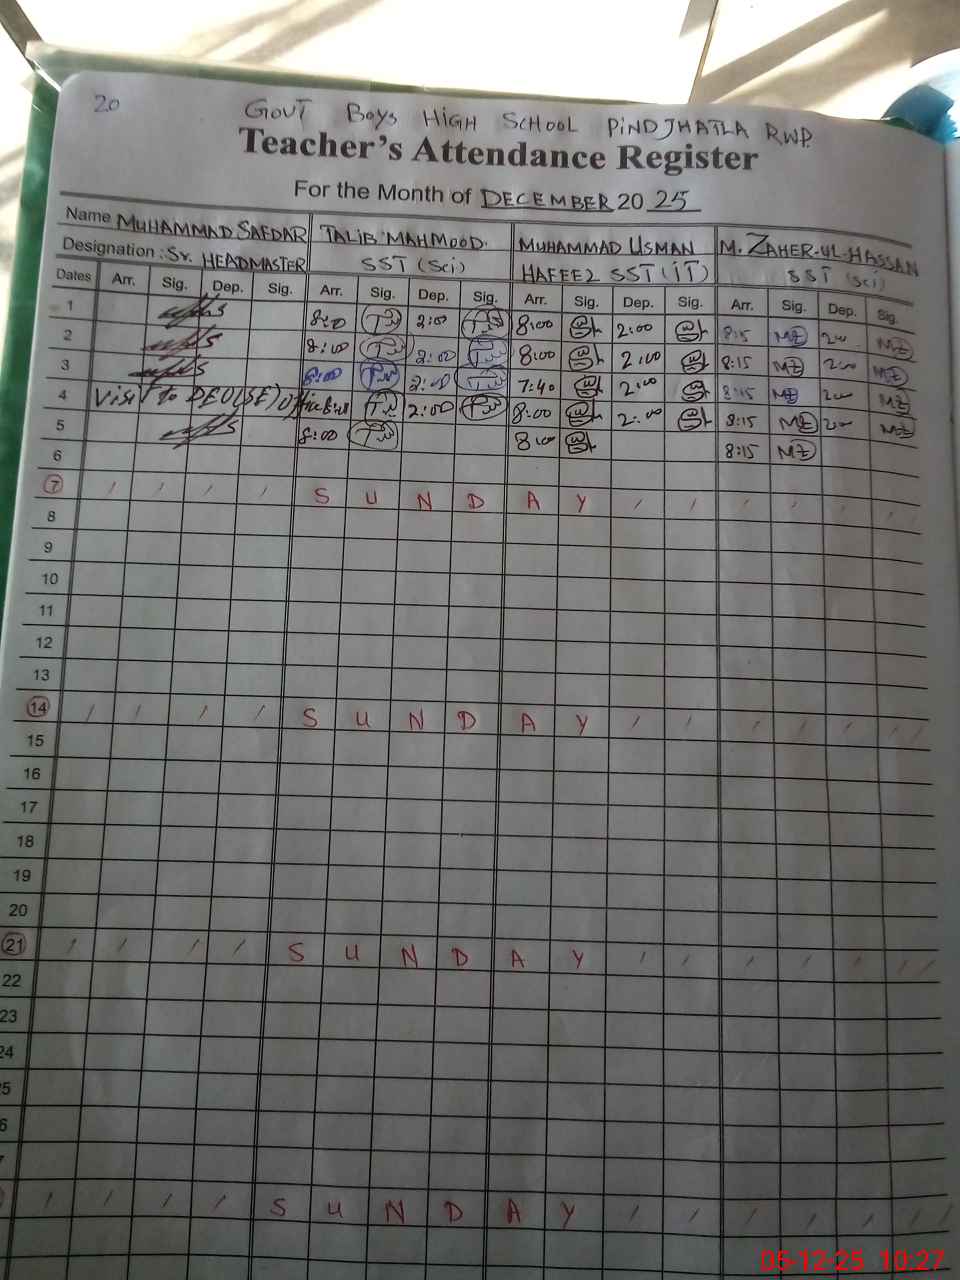 20
GOVT BOYS HIGH SCHOOL PIND JHATLA RWP.
Teacher's Attendance Register
For the Month of DECEMBER 2025
Name MUHAMMAD SAFDAR TALIB MAHMOOD. MUHAMMAD USMAN M. ZAHER-UL-HASSAN
Designation : Sr. HEADMASTER SST (Sci) HAFEEZ SST (IT) SST (Sci)
Dates Arr. Sig. Dep. Sig. Arr. Sig. Dep. Sig. Arr. Sig. Dep. Sig. Arr. Sig. Dep. Sig.
1 8:00 2:00 8:00 2:00 8:15 MZ 200 MZ
2 8:00 2:00 8:00 2:00 8:15 MZ 200 MZ
3 8:00 2:00 7:40 2:00 8:15 MZ 200 MZ
4 Visit to DEO(SE) Office 2:00 8:00 2:00 8:15 MZ 200 MZ
5 8:00 8:00 8:15 MZ
6
7 S U N D A Y
8
9
10
11
12
13
14 S U N D A Y
15
16
17
18
19
20
21 S U N D A Y
22
23
24
5
6
7
S U N D A Y
05-12-25 10:27